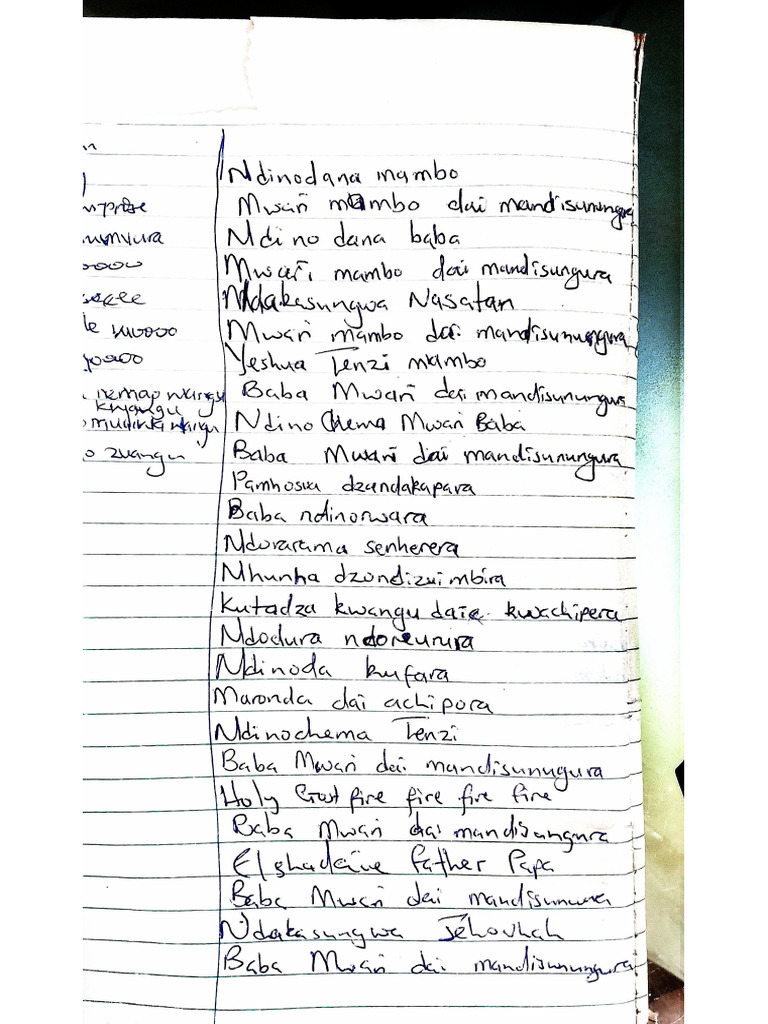 Ndinodana mambo
Mwari mambo dai mandisunungura
Ndino dana baba
Mwari mambo dai mandisungura
Ndakasungwa Nasatan
Mwari mambo dai mandisunungura
Yeshua Tenzi mambo
Baba Mwari dai mandisunungura
Ndino Chema Mwari Baba
Baba Mwari dai mandisunungura
Pamhosva dzandakapara
Baba ndinorwara
Ndorarama senherera
Nhunha dzondizuimbira
Kutadza kwangu dai kwachipera
Ndodura ndoreurura
Ndinoda kufara
Maronda dai achipora
Ndinochema Tenzi
Baba Mwari dai mandisunugura
Holy Gost fire fire fire fire
Baba Mwari dai mandisungura
Elshadaive father Papa
Baba Mwari dai
Ndakasungwa Jehovhah
Baba Mwari dai mandisunungura